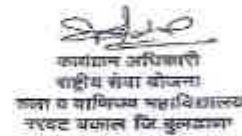 कार्यक्रम अधिकारी
राष्ट्रीय सेवा योजना
कला व वाणिज्य महाविद्यालय
वरवट बकाल जि. बुलडाणा